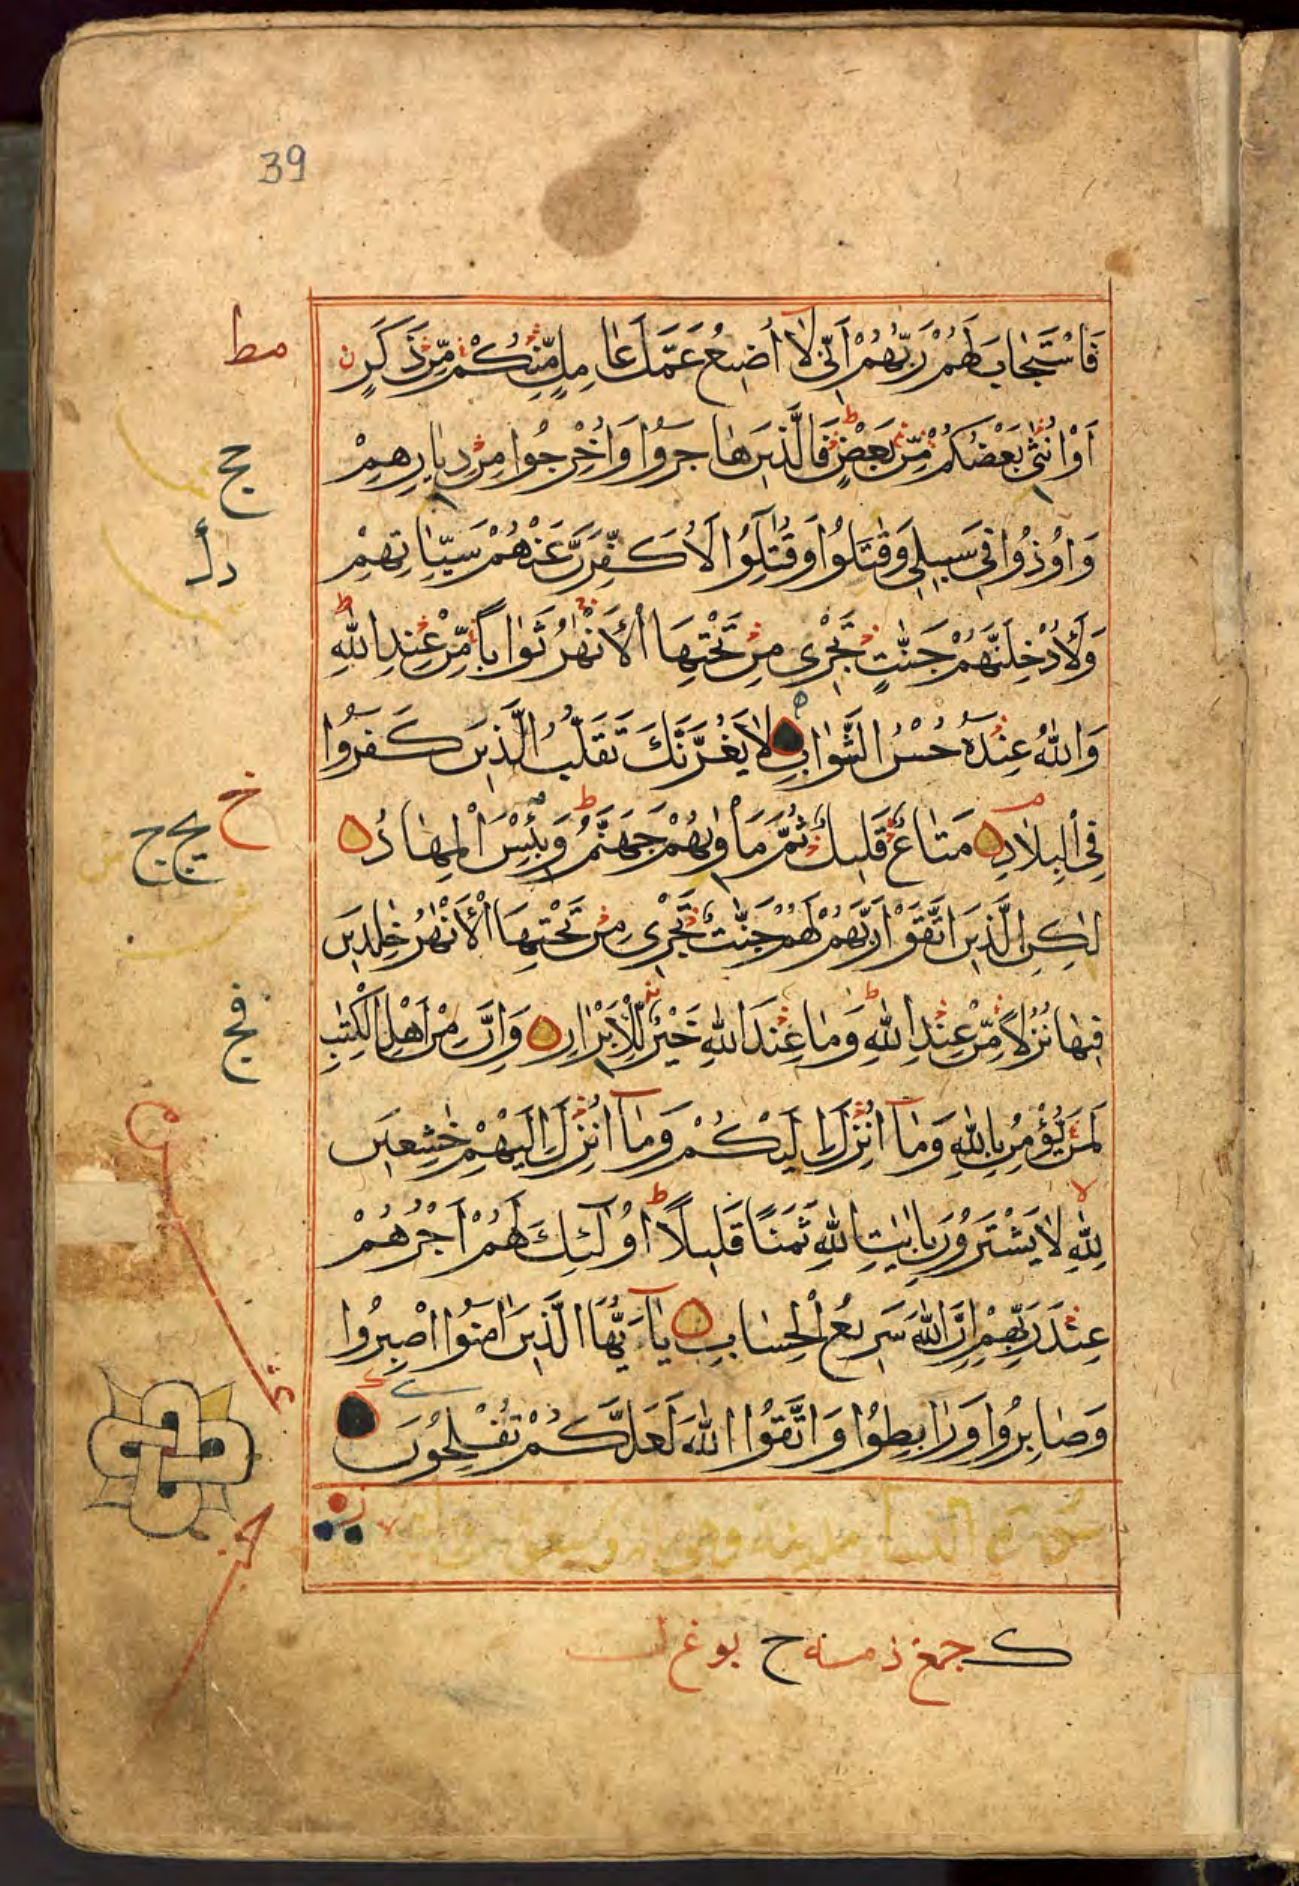 39
فَاسْتَجَابَ لَهُمْ رَبُّهُمْ اَنّٖى لَا اُضٖيعُ عَمَلَ عَامِلٍ مِّنْكُمْ مِّنْ ذَكَرٍ
اَوْ اُنْثٰى بَعْضُكُمْ مِّنْ بَعْضٍ فَالَّذٖينَ هَاجَرُوا وَاُخْرِجُوا مِنْ دِيَارِهِمْ
وَاُوذُوا فٖى سَبٖيلٖى وَقٰتَلُوا وَقُتِلُوا لَاُكَفِّرَنَّ عَنْهُمْ سَيِّاٰتِهِمْ
وَلَاُدْخِلَنَّهُمْ جَنّٰتٍ تَجْرٖى مِنْ تَحْتِهَا الْاَنْهٰرُ ثَوَابًا مِّنْ عِنْدِ اللّٰهِ
وَاللّٰهُ عِنْدَهُ حُسْنُ الثَّوَابِ لَا يَغُرَّنَّكَ تَقَلُّبُ الَّذٖينَ كَفَرُوا
فِى الْبِلَادِ مَتَاعٌ قَلٖيلٌ ثُمَّ مَاْوٰيهُمْ جَهَنَّمُ وَبِئْسَ الْمِهَادُ
لٰكِنِ الَّذٖينَ اتَّقَوْا رَبَّهُمْ لَهُمْ جَنّٰتٌ تَجْرٖى مِنْ تَحْتِهَا الْاَنْهٰرُ خٰلِدٖينَ
فٖيهَا نُزُلًا مِّنْ عِنْدِ اللّٰهِ وَمَا عِنْدَ اللّٰهِ خَيْرٌ لِّلْاَبْرَارِ وَاِنَّ مِنْ اَهْلِ الْكِتٰبِ
لَمَنْ يُؤْمِنُ بِاللّٰهِ وَمَا اُنْزِلَ اِلَيْكُمْ وَمَا اُنْزِلَ اِلَيْهِمْ خٰشِعٖينَ
لِلّٰهِ لَا يَشْتَرُونَ بِاٰيٰتِ اللّٰهِ ثَمَنًا قَلٖيلًا اُولٰئِكَ لَهُمْ اَجْرُهُمْ
عِنْدَ رَبِّهِمْ اِنَّ اللّٰهَ سَرٖيعُ الْحِسَابِ يَا اَيُّهَا الَّذٖينَ اٰمَنُوا اصْبِرُوا
وَصَابِرُوا وَرَابِطُوا وَاتَّقُوا اللّٰهَ لَعَلَّكُمْ تُفْلِحُونَ
سورة النسا مدينة وهى